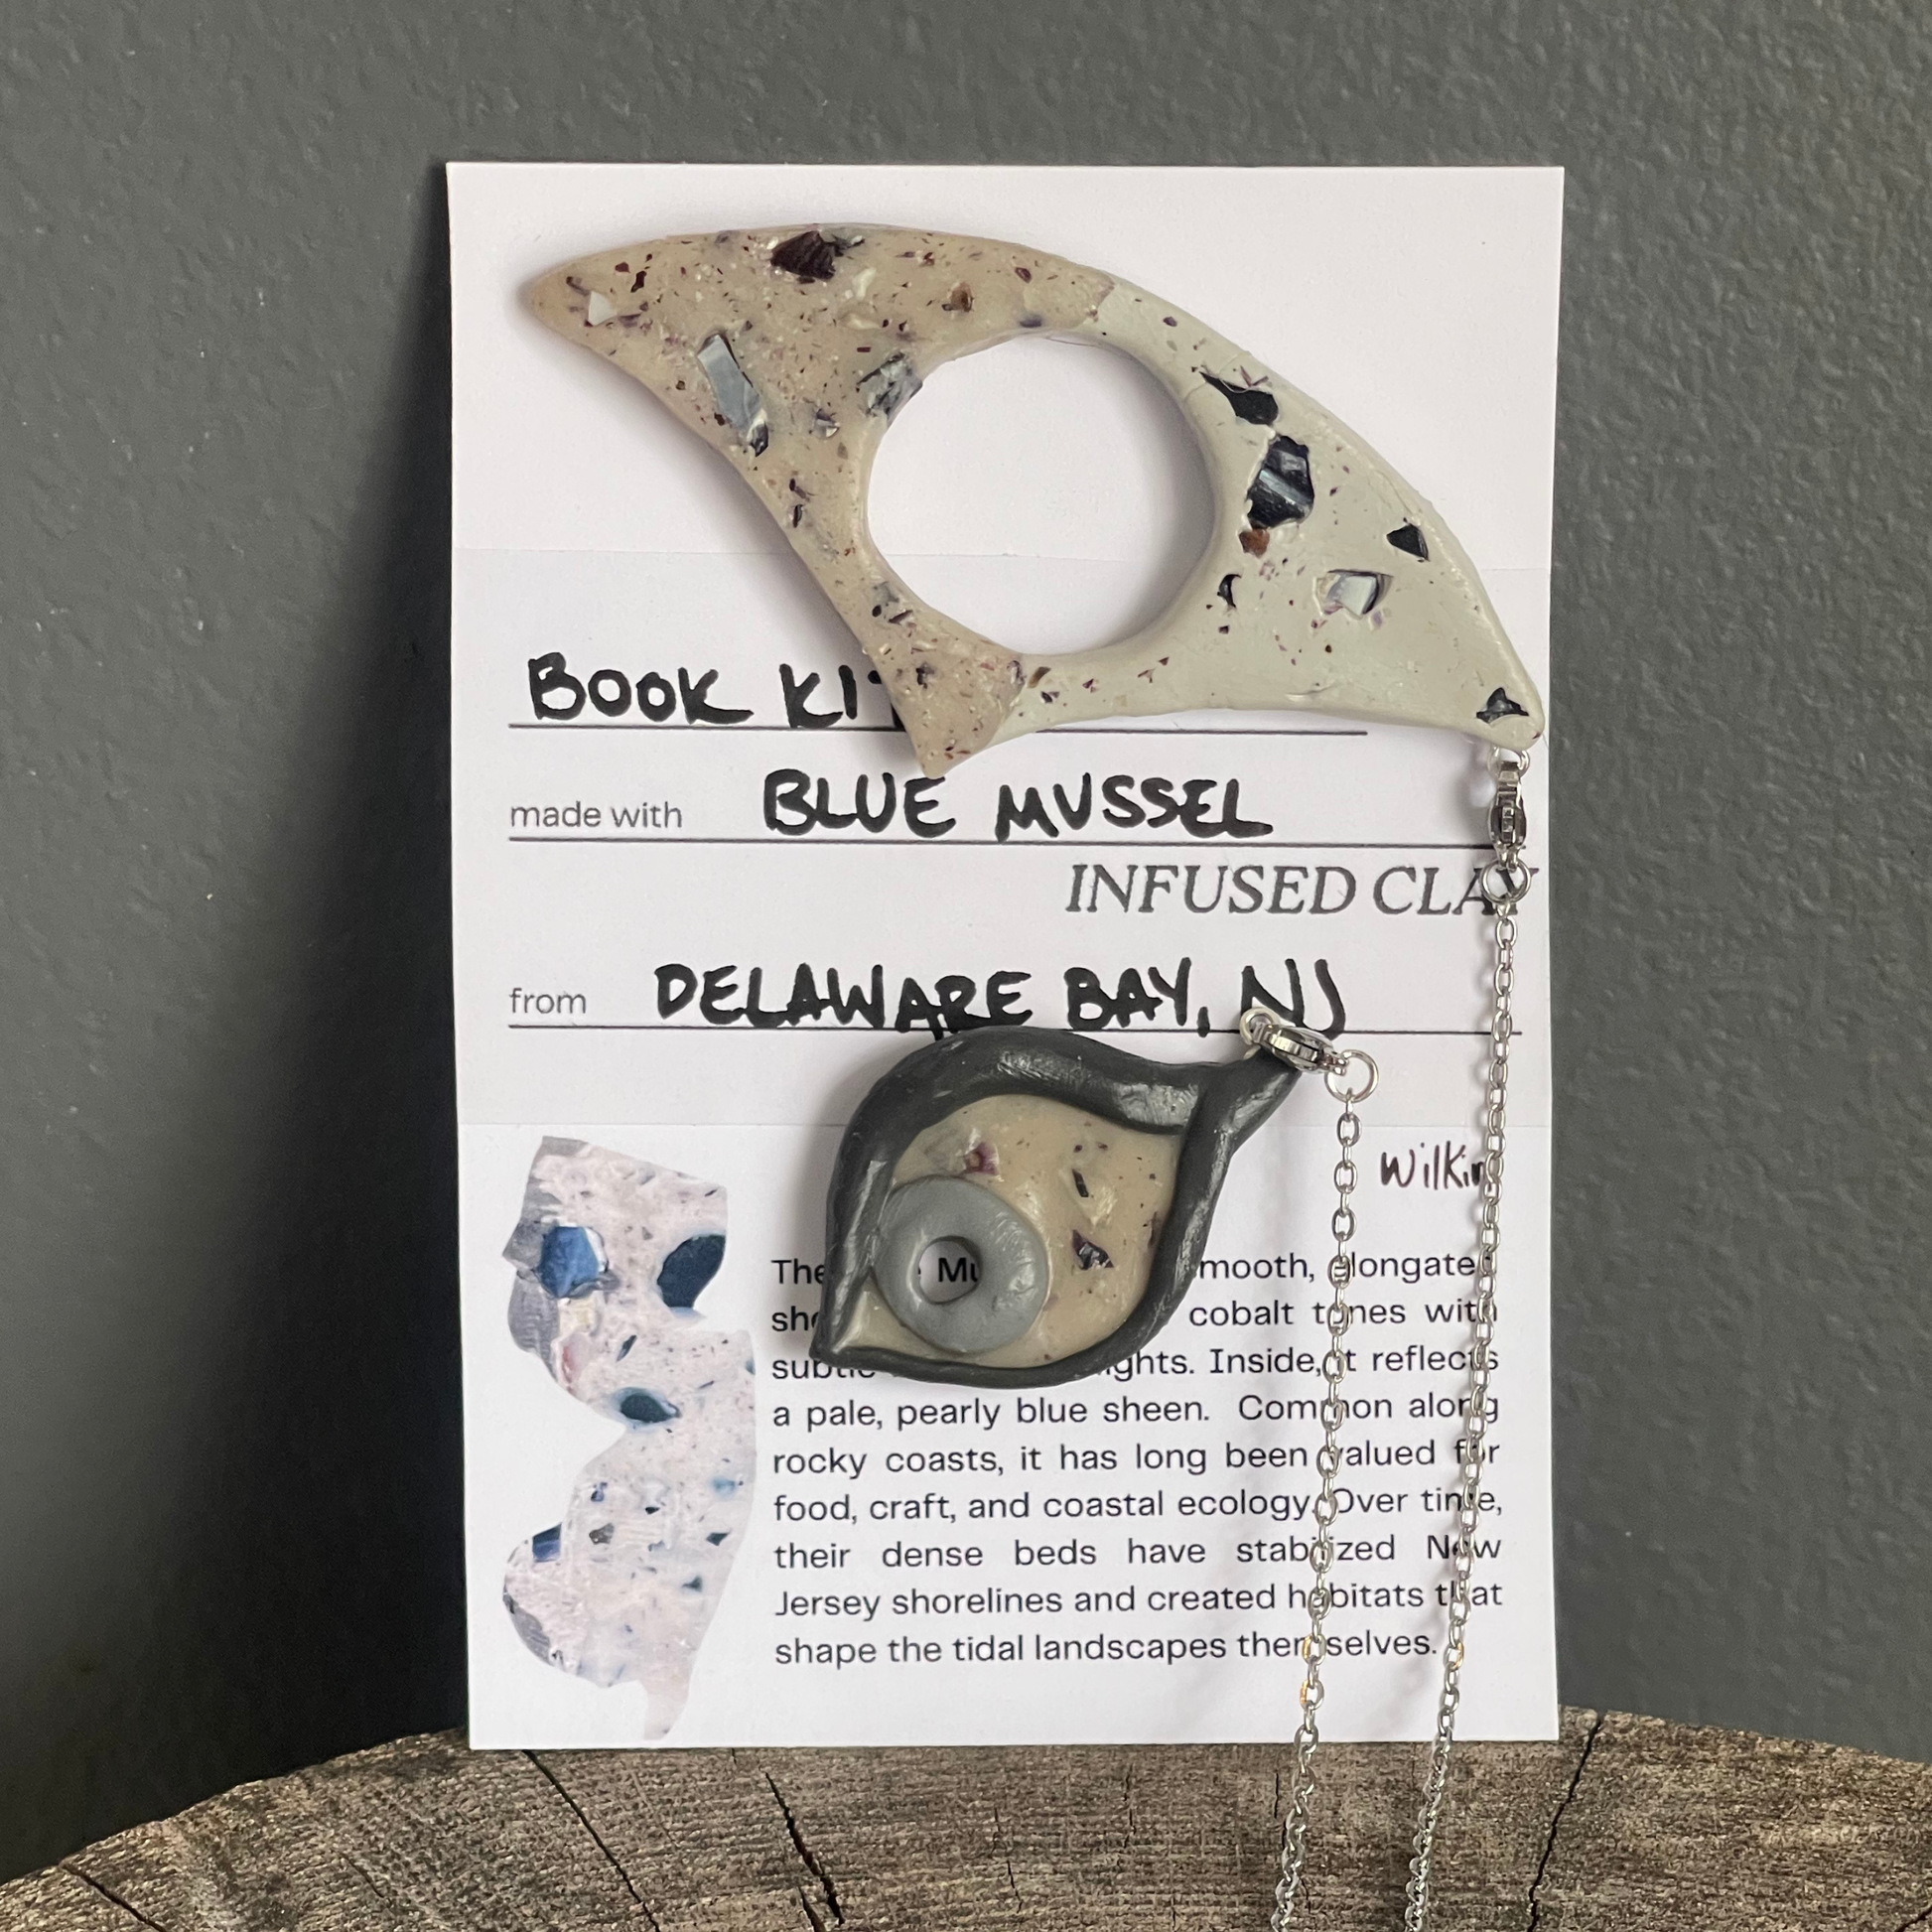 BOOK KIT
made with BLUE MUSSEL
INFUSED CLAY
from DELAWARE BAY, NJ
The Mu mooth, elongated
cobalt tones with
subtle ghts. Inside, it reflects
a pale, pearly blue sheen. Common along
rocky coasts, it has long been valued for
food, craft, and coastal ecology. Over time,
their dense beds have stabilized New
Jersey shorelines and created habitats that
shape the tidal landscapes themselves.